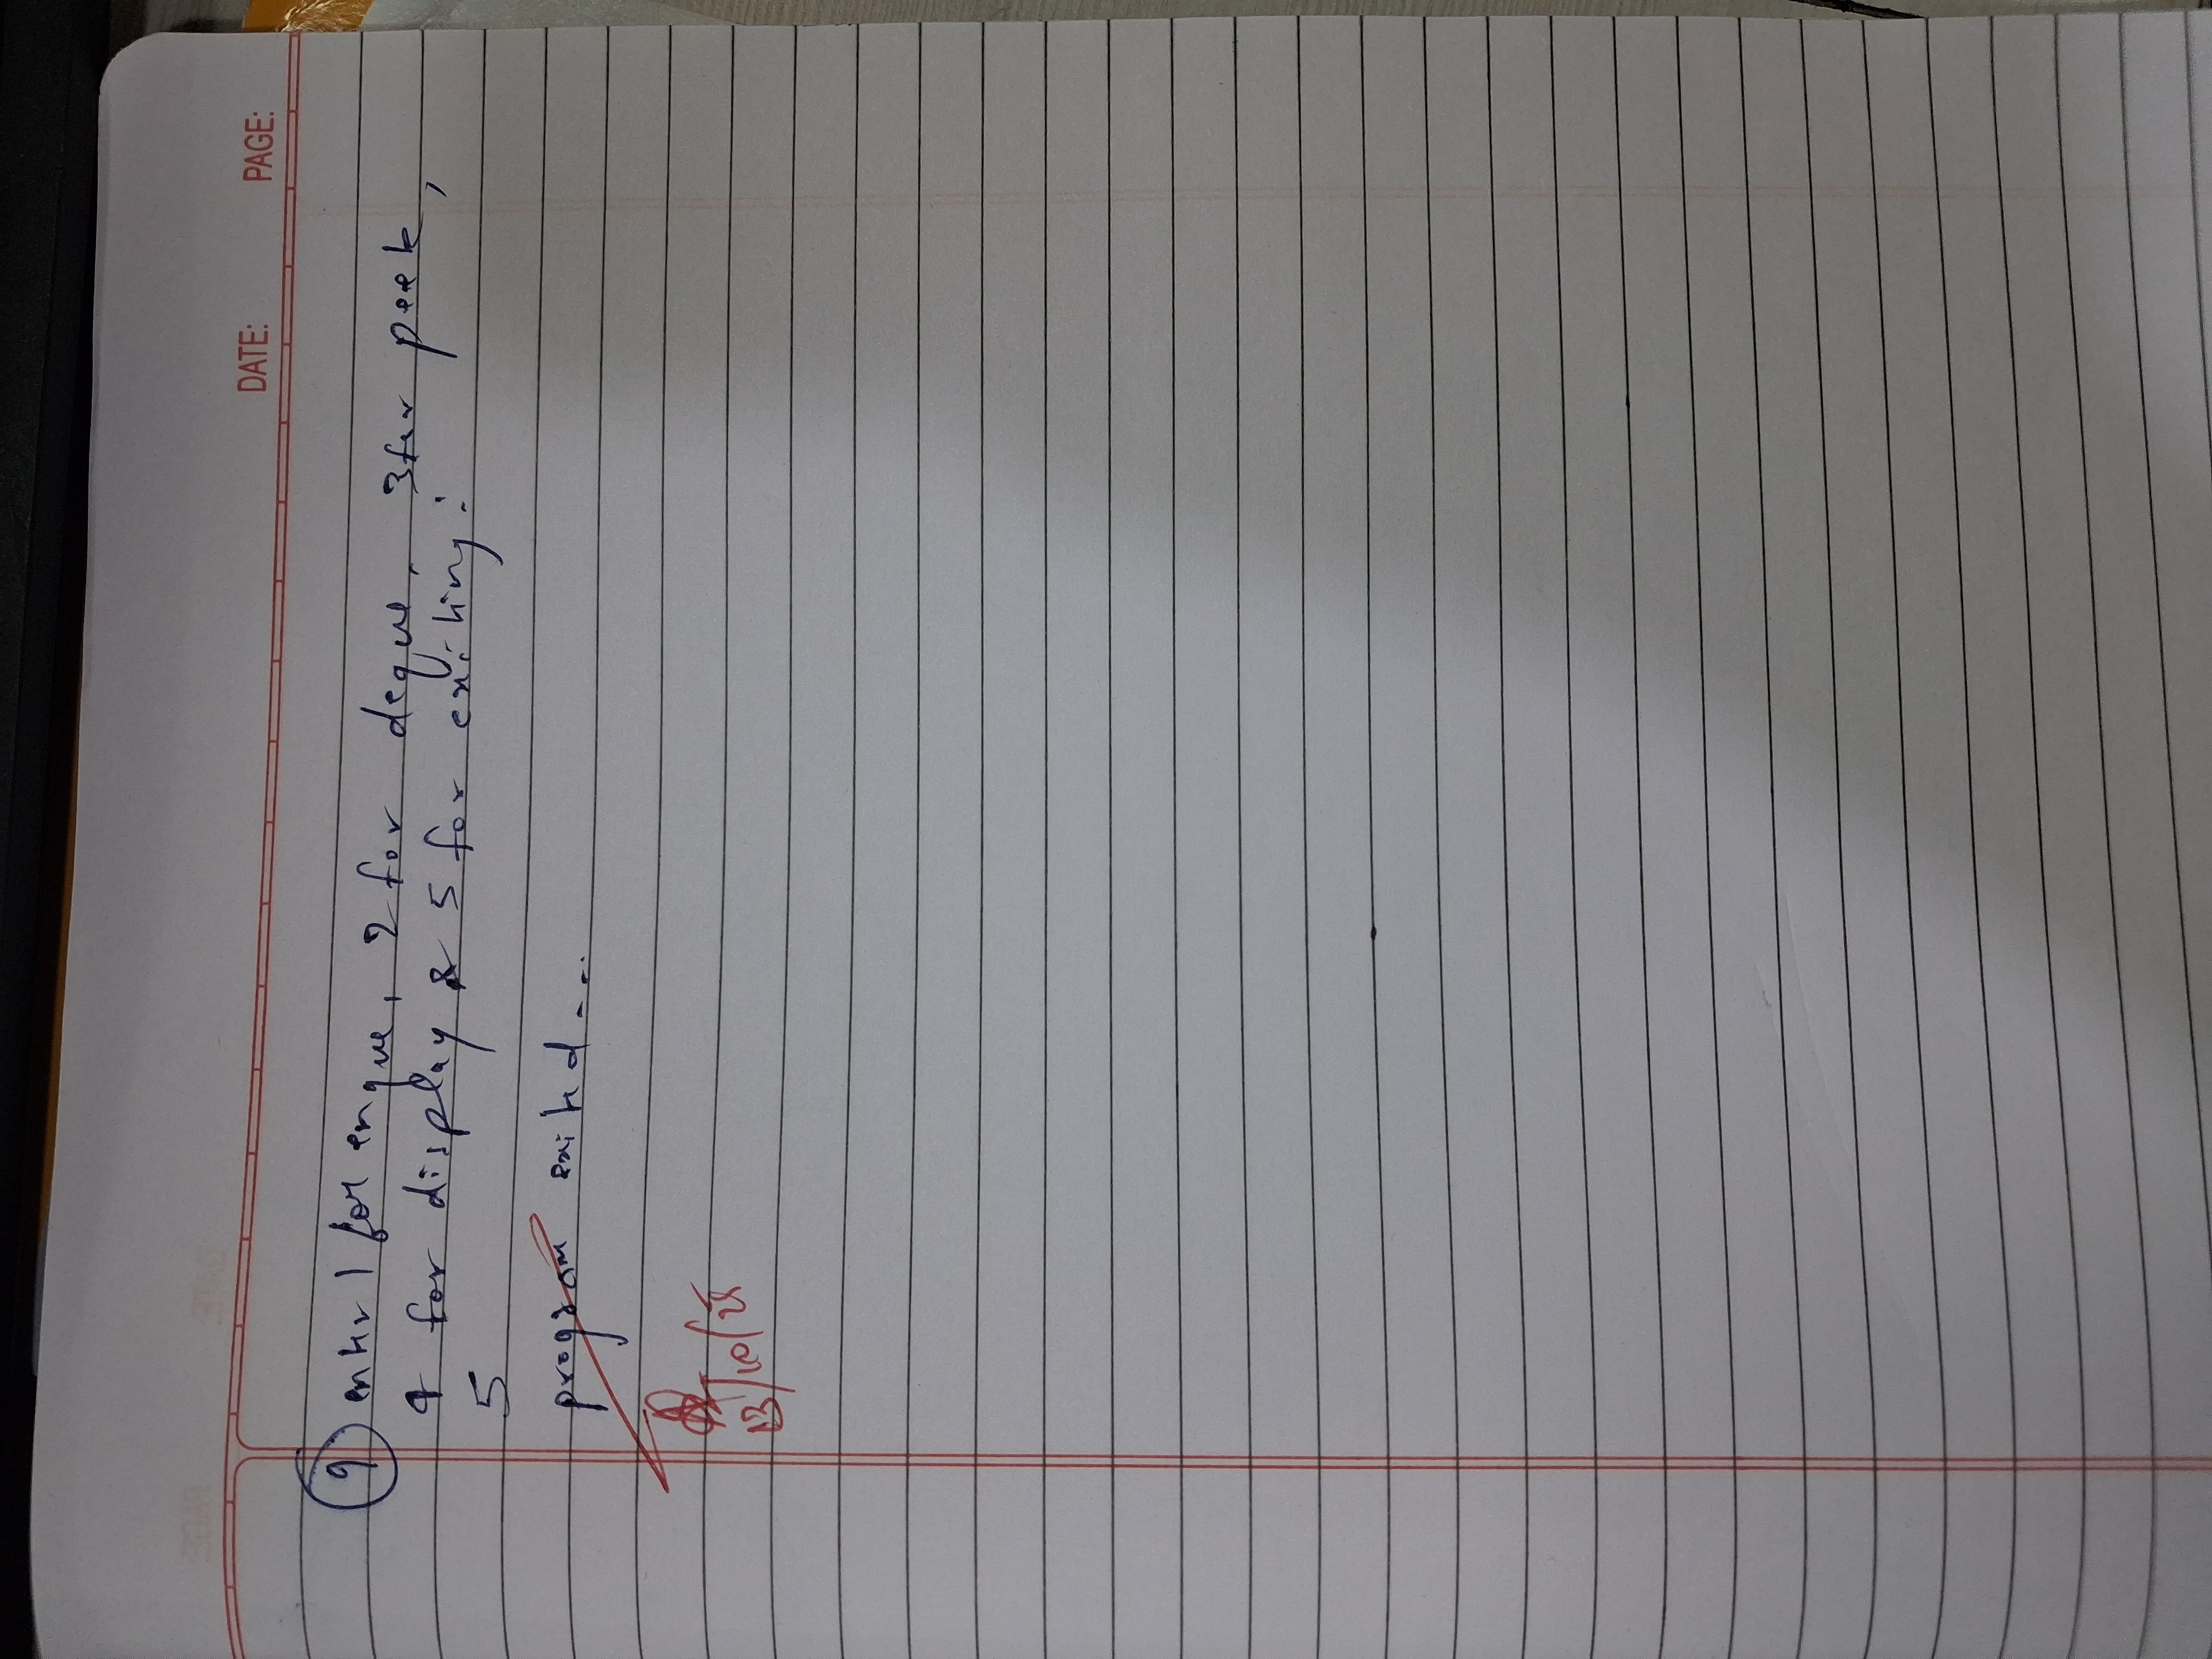 DATE: PAGE:
9 enter 1 for enque, 2 for deque, 3 for peek,
4 for display & 5 for exiting:
5
program exited...
13/10/25